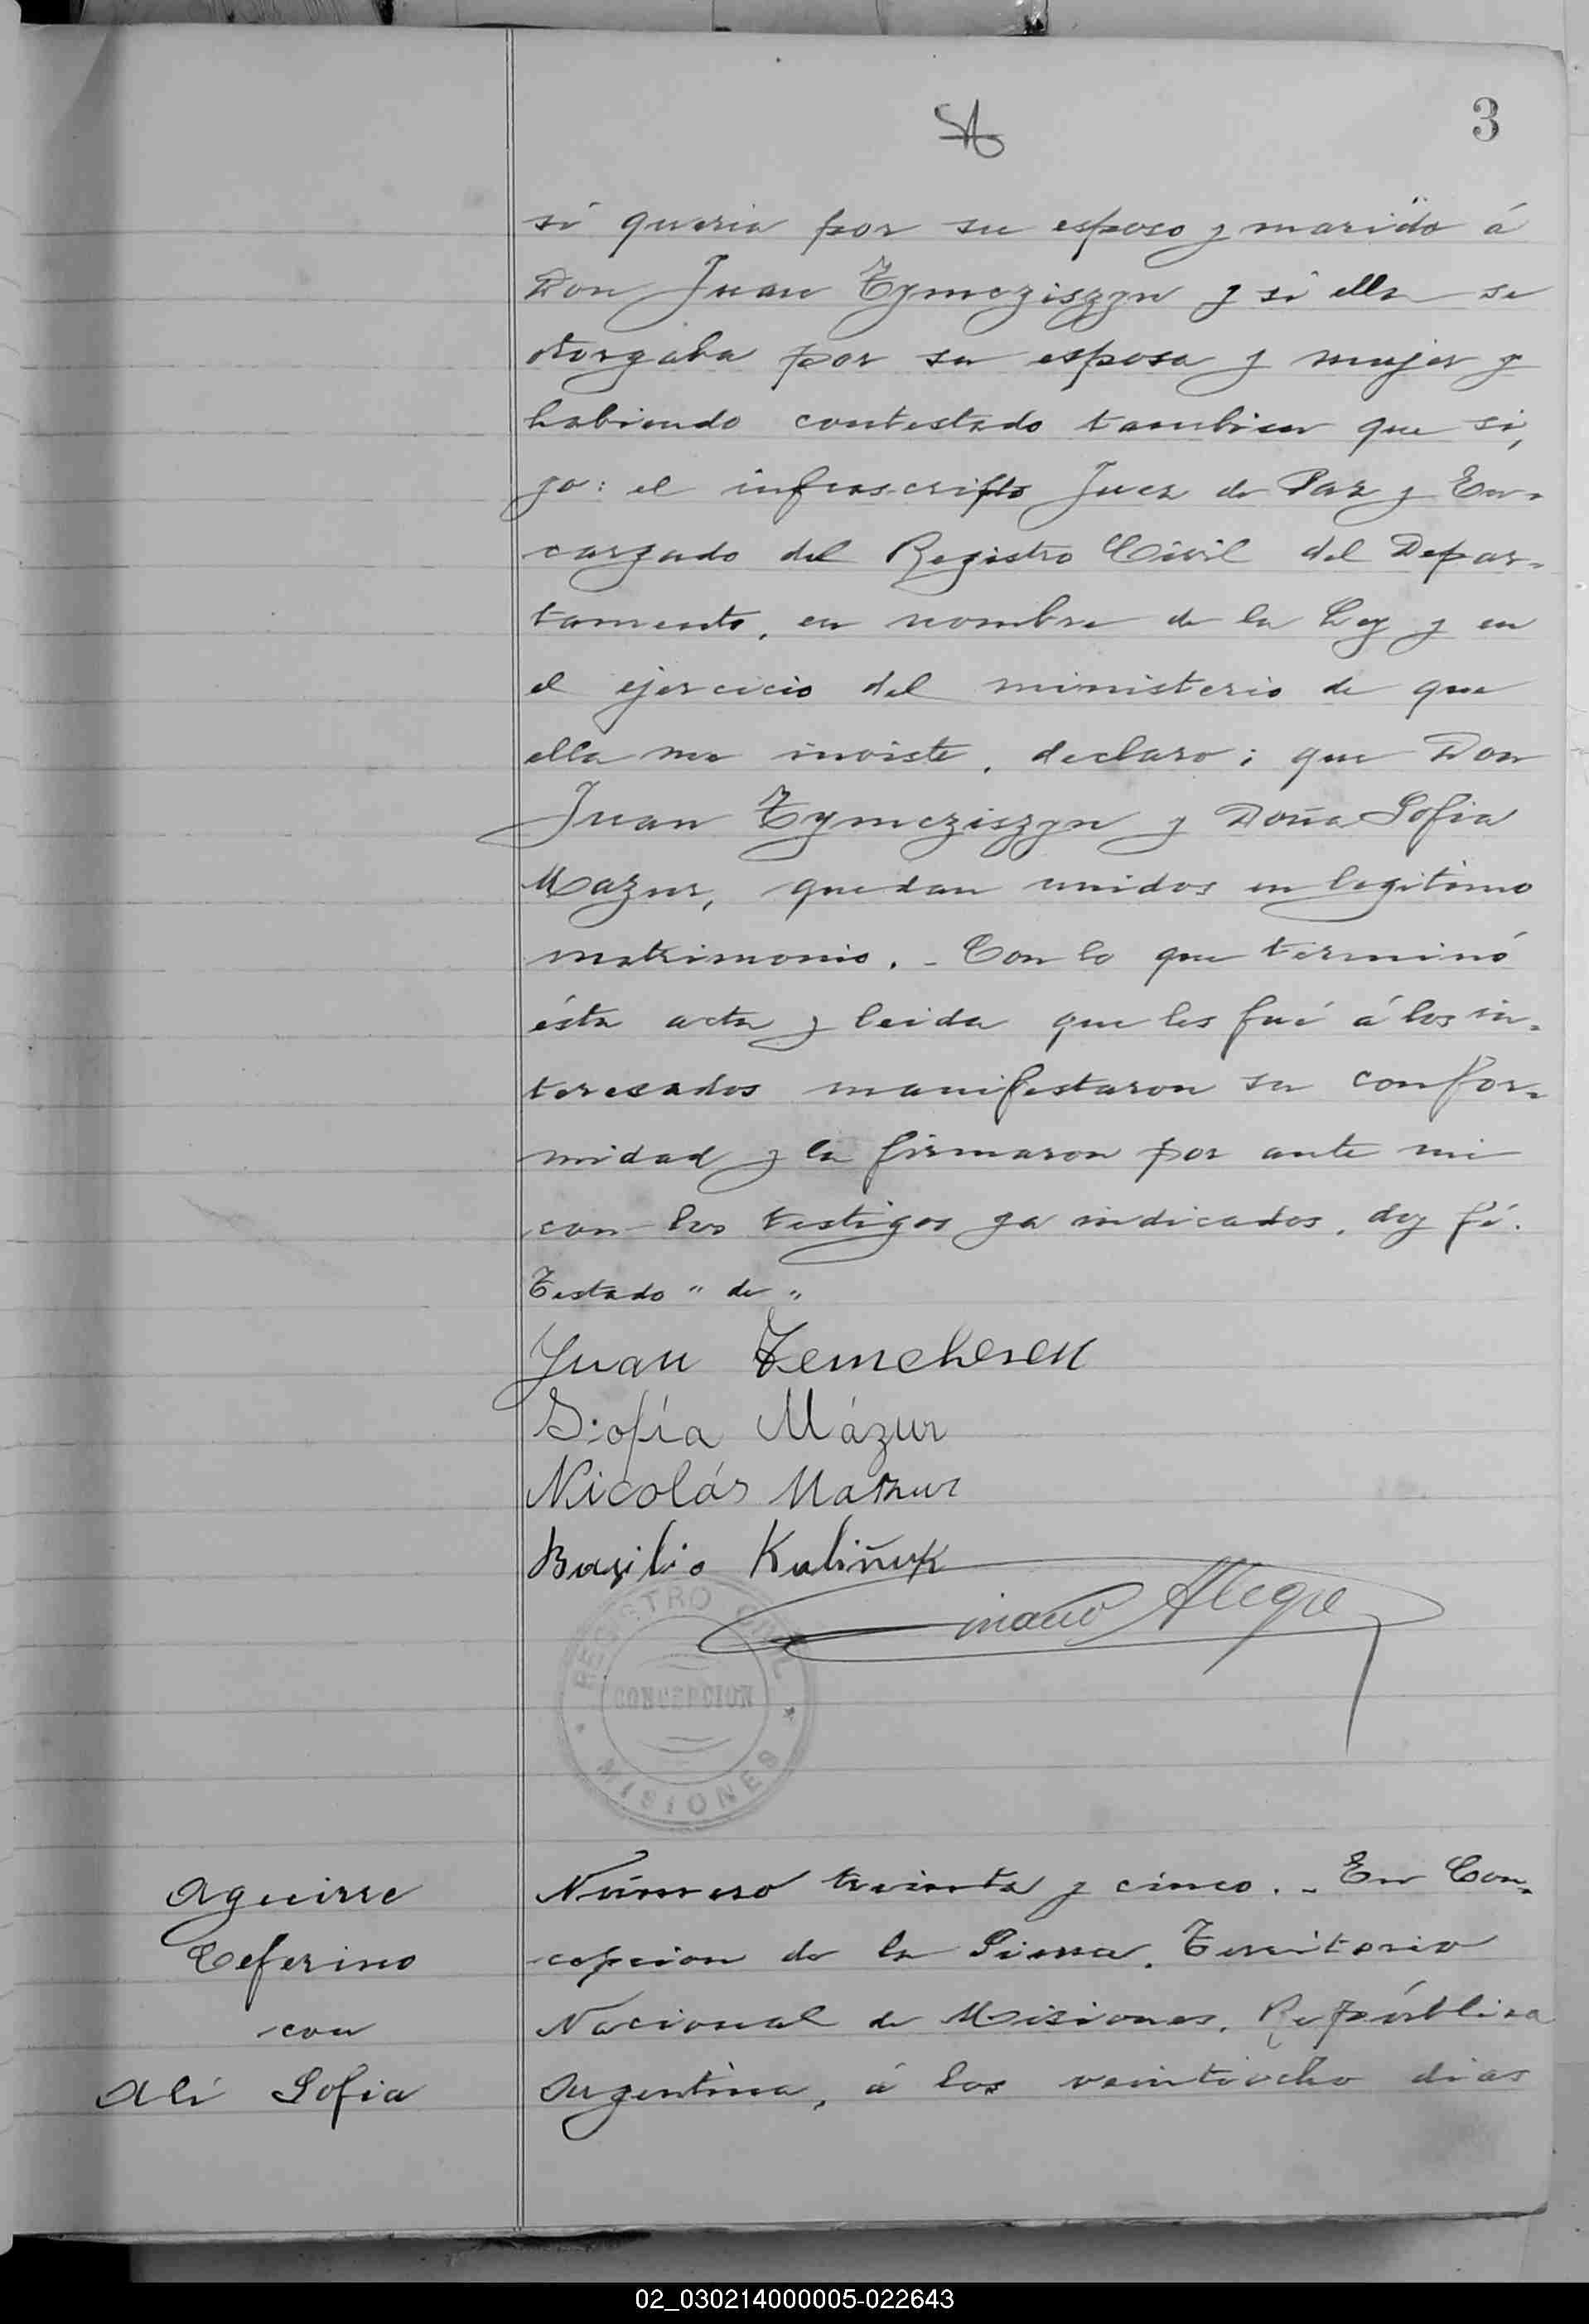 3
si queria por su esposo y marido á
Don Juan Tymcziszyn y si ella se
otorgaba por su esposa y mujer y
habiendo contestado tambien que si,
yo: el infrascripto Juez de Paz y En-
cargado del Registro Civil del Depar-
tamento, en nombre de la Ley y en
el ejercicio del ministerio de que
ella me inviste, declaro; que Don
Juan Tymcziszyn y Doña Sofia
Mazur, quedan unidos en legitimo
matrimonio. - Con lo que terminó
ésta acta y leida que les fué á los in-
teresados manifestaron su confor-
midad y la firmaron por ante mi
con los testigos ya indicados, doy fé.
Testado " de "
Juan Temchesen
Sofía Mázur
Nicolás Mazur
Basilio Kaliñuk
Alegre
REGISTRO CIVIL
CONCEPCION
MISIONES
Aguirre
Ceferino
con
Alí Sofia
Número treinta y cinco. - En Con-
cepcion de la Sierra, Territorio
Nacional de Misiones, República
Argentina, á los veintiocho dias
02_030214000005-022643